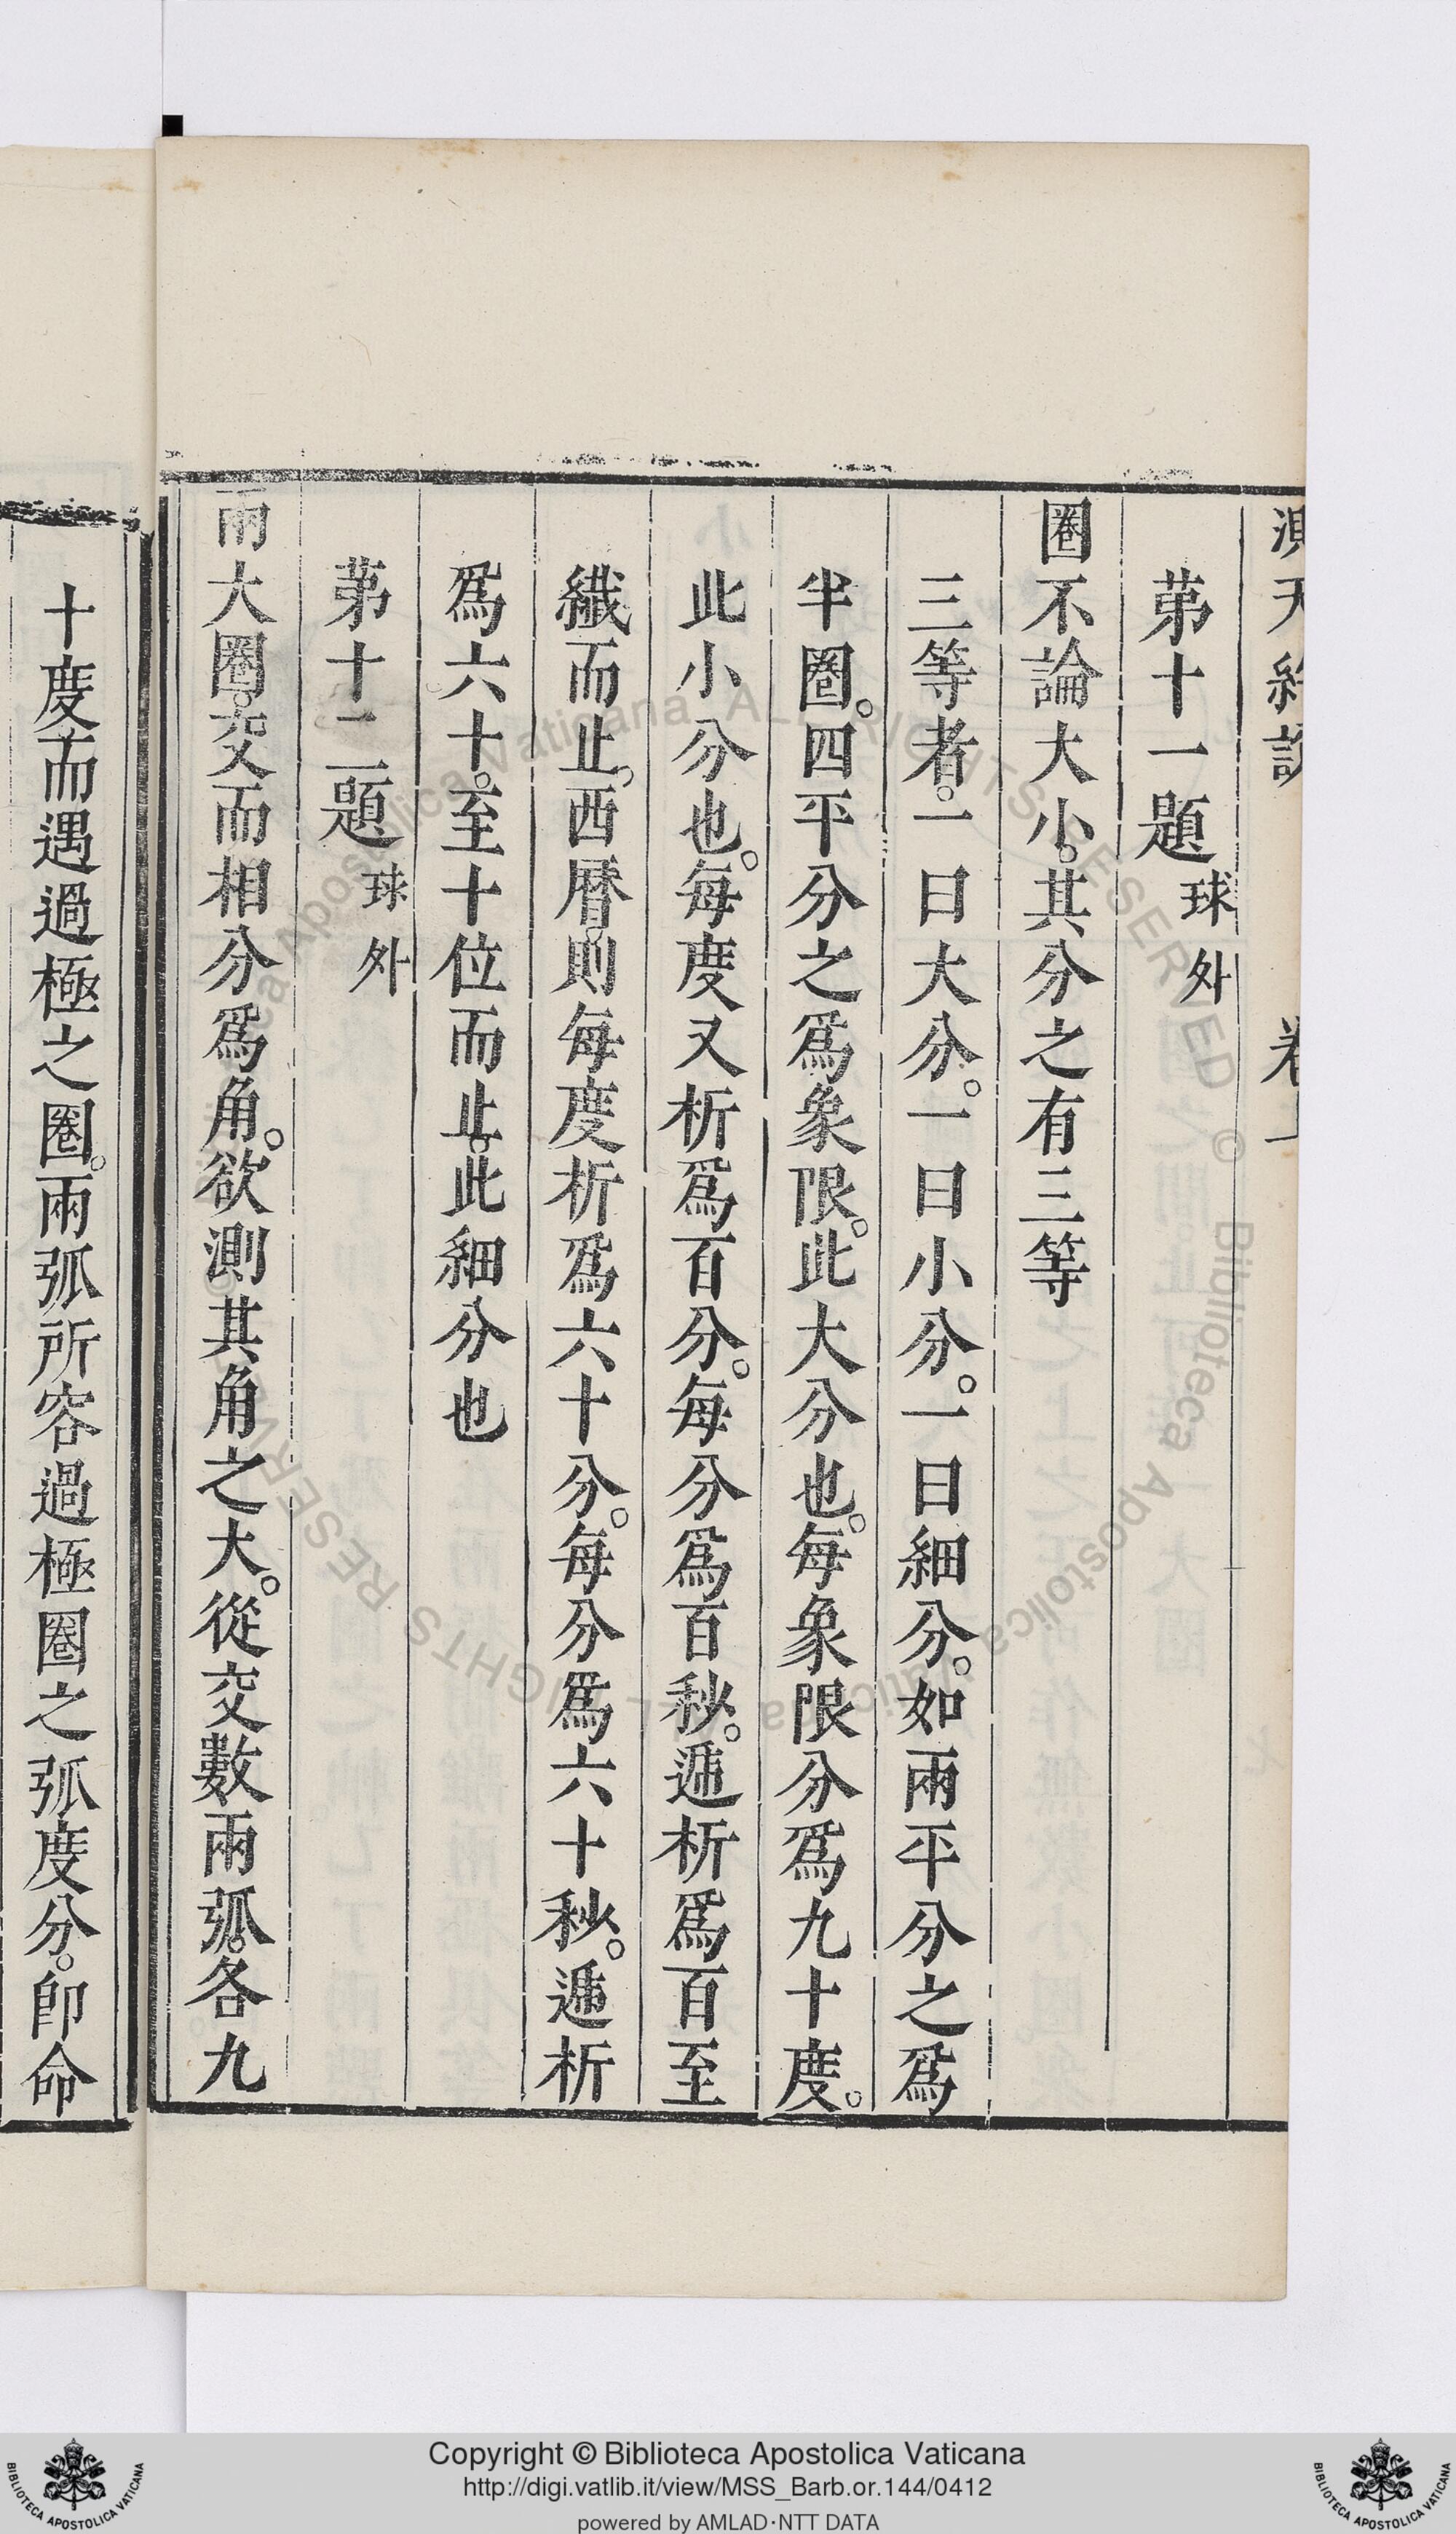 測天約說 卷上
第十一題球外
圈不論大小。其分之有三等
三等者。一曰大分。一曰小分。一曰細分。如兩平分之爲
半圈。四平分之爲象限。此大分也。每象限分爲九十度。
此小分也。每度又析爲百分。每分爲百秒。遞析爲百至
纖而止。西曆則每度析爲六十分。每分爲六十秒。遞析
爲六十。至十位而止。此細分也
第十二題球外
兩大圈。交而相分爲角。欲測其角之大。從交數兩弧。各九
十度而遇過極之圈。兩弧所容過極圈之弧度分。卽命
Biblioteca Apostolica Vaticana ALL RIGHTS RESERVED ©
Copyright © Biblioteca Apostolica Vaticana
http://digi.vatlib.it/view/MSS_Barb.or.144/0412
powered by AMLAD·NTT DATA
BIBLIOTECA APOSTOLICA VATICANA
BIBLIOTECA APOSTOLICA VATICANA